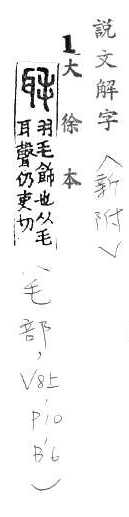 說文解字〈新附〉
1大徐本
毦
羽毛飾也从毛
耳聲仍吏切
(毛部, V8上, P10, B'6)